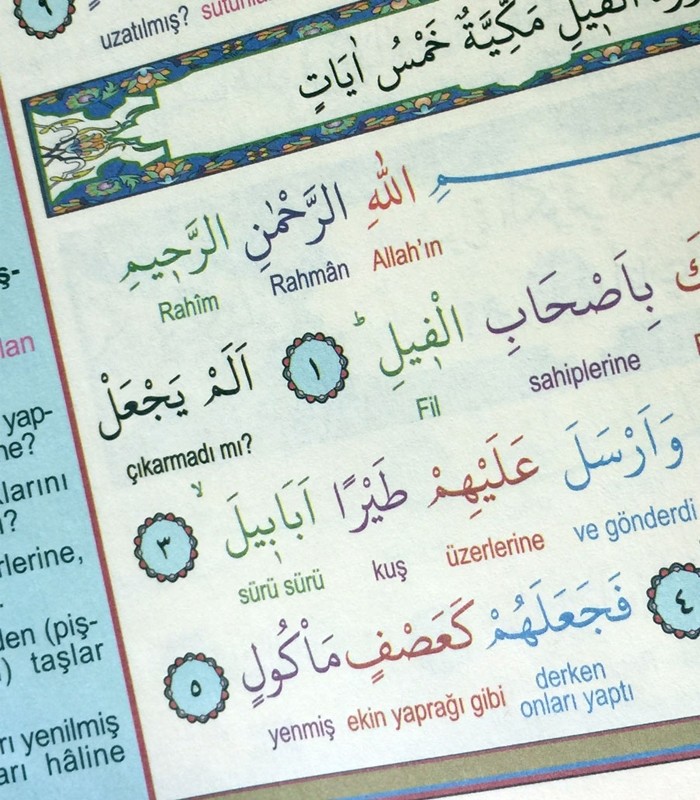 ٩
uzatılmış?
الفٖيلِ مَكِّيَّةٌ خَمْسُ اٰيَاتٍ
اللّٰهِ الرَّحْمٰنِ الرَّحٖيمِ
Allah'ın Rahmân Rahîm
بِاَصْحَابِ الْفٖيلِؕ ١ اَلَمْ يَجْعَلْ
sahiplerine Fil çıkarmadı mı?
وَاَرْسَلَ عَلَيْهِمْ طَيْرًا اَبَابٖيلَۙ ٣
ve gönderdi üzerlerine kuş sürü sürü
٤ فَجَعَلَهُمْ كَعَصْفٍ مَاْكُولٍ ٥
derken onları yaptı ekin yaprağı gibi yenmiş
ş-
lan
yap-
larını
rlerine,
den (piş-
) taşlar
rı yenilmiş
arı hâline